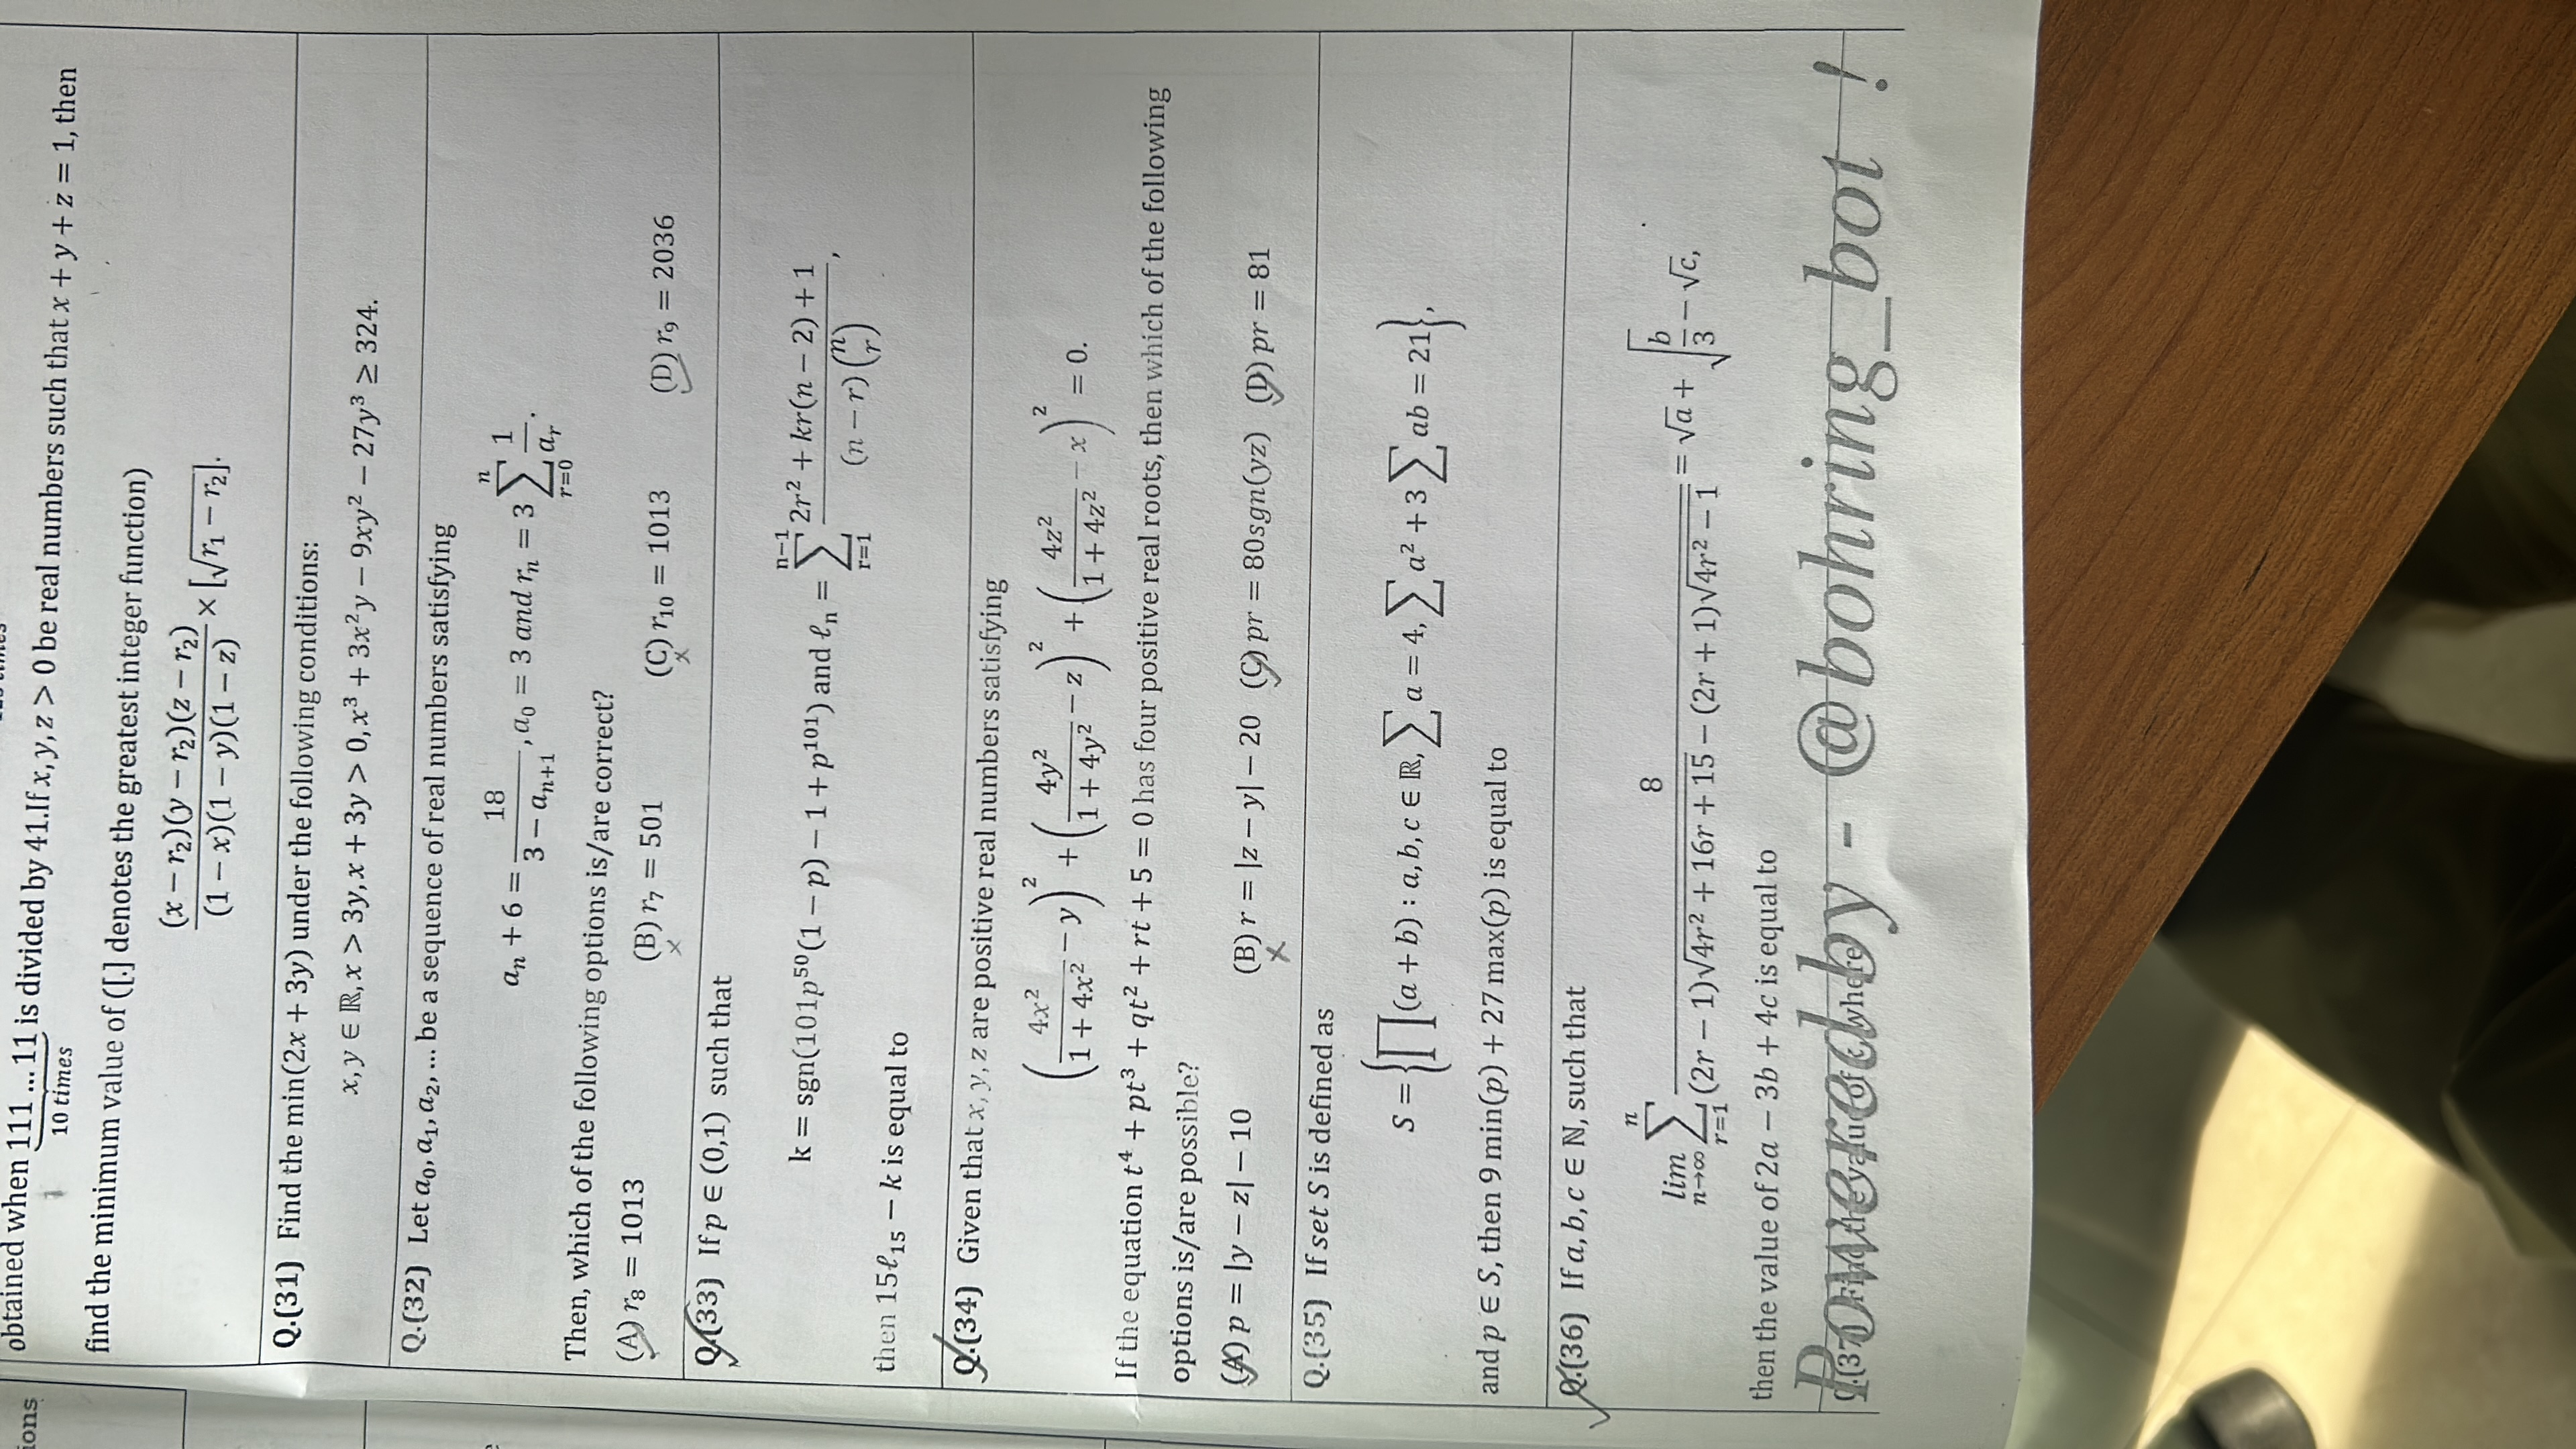 obtained when 111 ... 11 is divided by 41. If x, y, z > 0 be real numbers such that x + y + z = 1, then
10 times
find the minimum value of ([.] denotes the greatest integer function)
(x − r₂)(y − r₂)(z − r₂) / (1 − x)(1 − y)(1 − z) × [√(r₁ − r₂)].
Q.(31) Find the min(2x + 3y) under the following conditions:
x, y ∈ ℝ, x > 3y, x + 3y > 0, x³ + 3x²y − 9xy² − 27y³ ≥ 324.
Q.(32) Let a₀, a₁, a₂, ... be a sequence of real numbers satisfying
aₙ + 6 = 18 / (3 − aₙ₊₁), a₀ = 3 and rₙ = 3 ∑_{r=0}^{n} 1/aᵣ.
Then, which of the following options is/are correct?
(A) r₈ = 1013 (B) r₇ = 501 (C) r₁₀ = 1013 (D) r₉ = 2036
Q.(33) If p ∈ (0,1) such that
k = sgn(101p⁵⁰(1 − p) − 1 + p¹⁰¹) and ℓₙ = ∑_{r=1}^{n−1} (2r² + kr(n − 2) + 1) / ((n − r)(n r)),
then 15ℓ₁₅ − k is equal to
Q.(34) Given that x, y, z are positive real numbers satisfying
(4x²/(1 + 4x²) − y)² + (4y²/(1 + 4y²) − z)² + (4z²/(1 + 4z²) − x)² = 0.
If the equation t⁴ + pt³ + qt² + rt + 5 = 0 has four positive real roots, then which of the following
options is/are possible?
(A) p = |y − z| − 10 (B) r = |z − y| − 20 (C) pr = 80sgn(yz) (D) pr = 81
Q.(35) If set S is defined as
S = {∏(a + b) : a, b, c ∈ ℝ, ∑a = 4, ∑a² + 3∑ab = 21},
and p ∈ S, then 9 min(p) + 27 max(p) is equal to
Q.(36) If a, b, c ∈ ℕ, such that
lim_{n→∞} ∑_{r=1}^{n} 8 / ((2r − 1)√(4r² + 16r + 15) − (2r + 1)√(4r² − 1)) = √a + √(b/3) − √c,
then the value of 2a − 3b + 4c is equal to
Q.(37) Find the value of t, where
Powered by - @bohring_bot !
ions